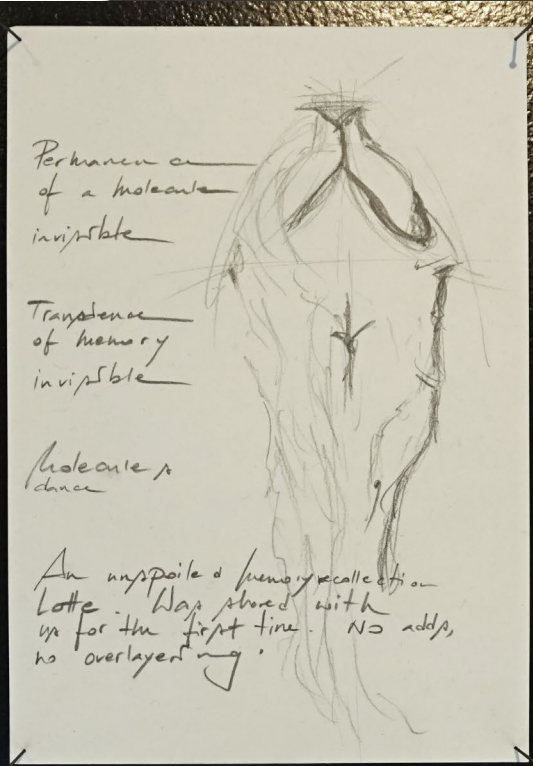 Permanence
of a molecule
invisible
Transience
of memory
invisible
Molecules
dance
An unspoiled memory recollection
Lotte. Was shared with
us for the first time. No adds,
no overlayering.